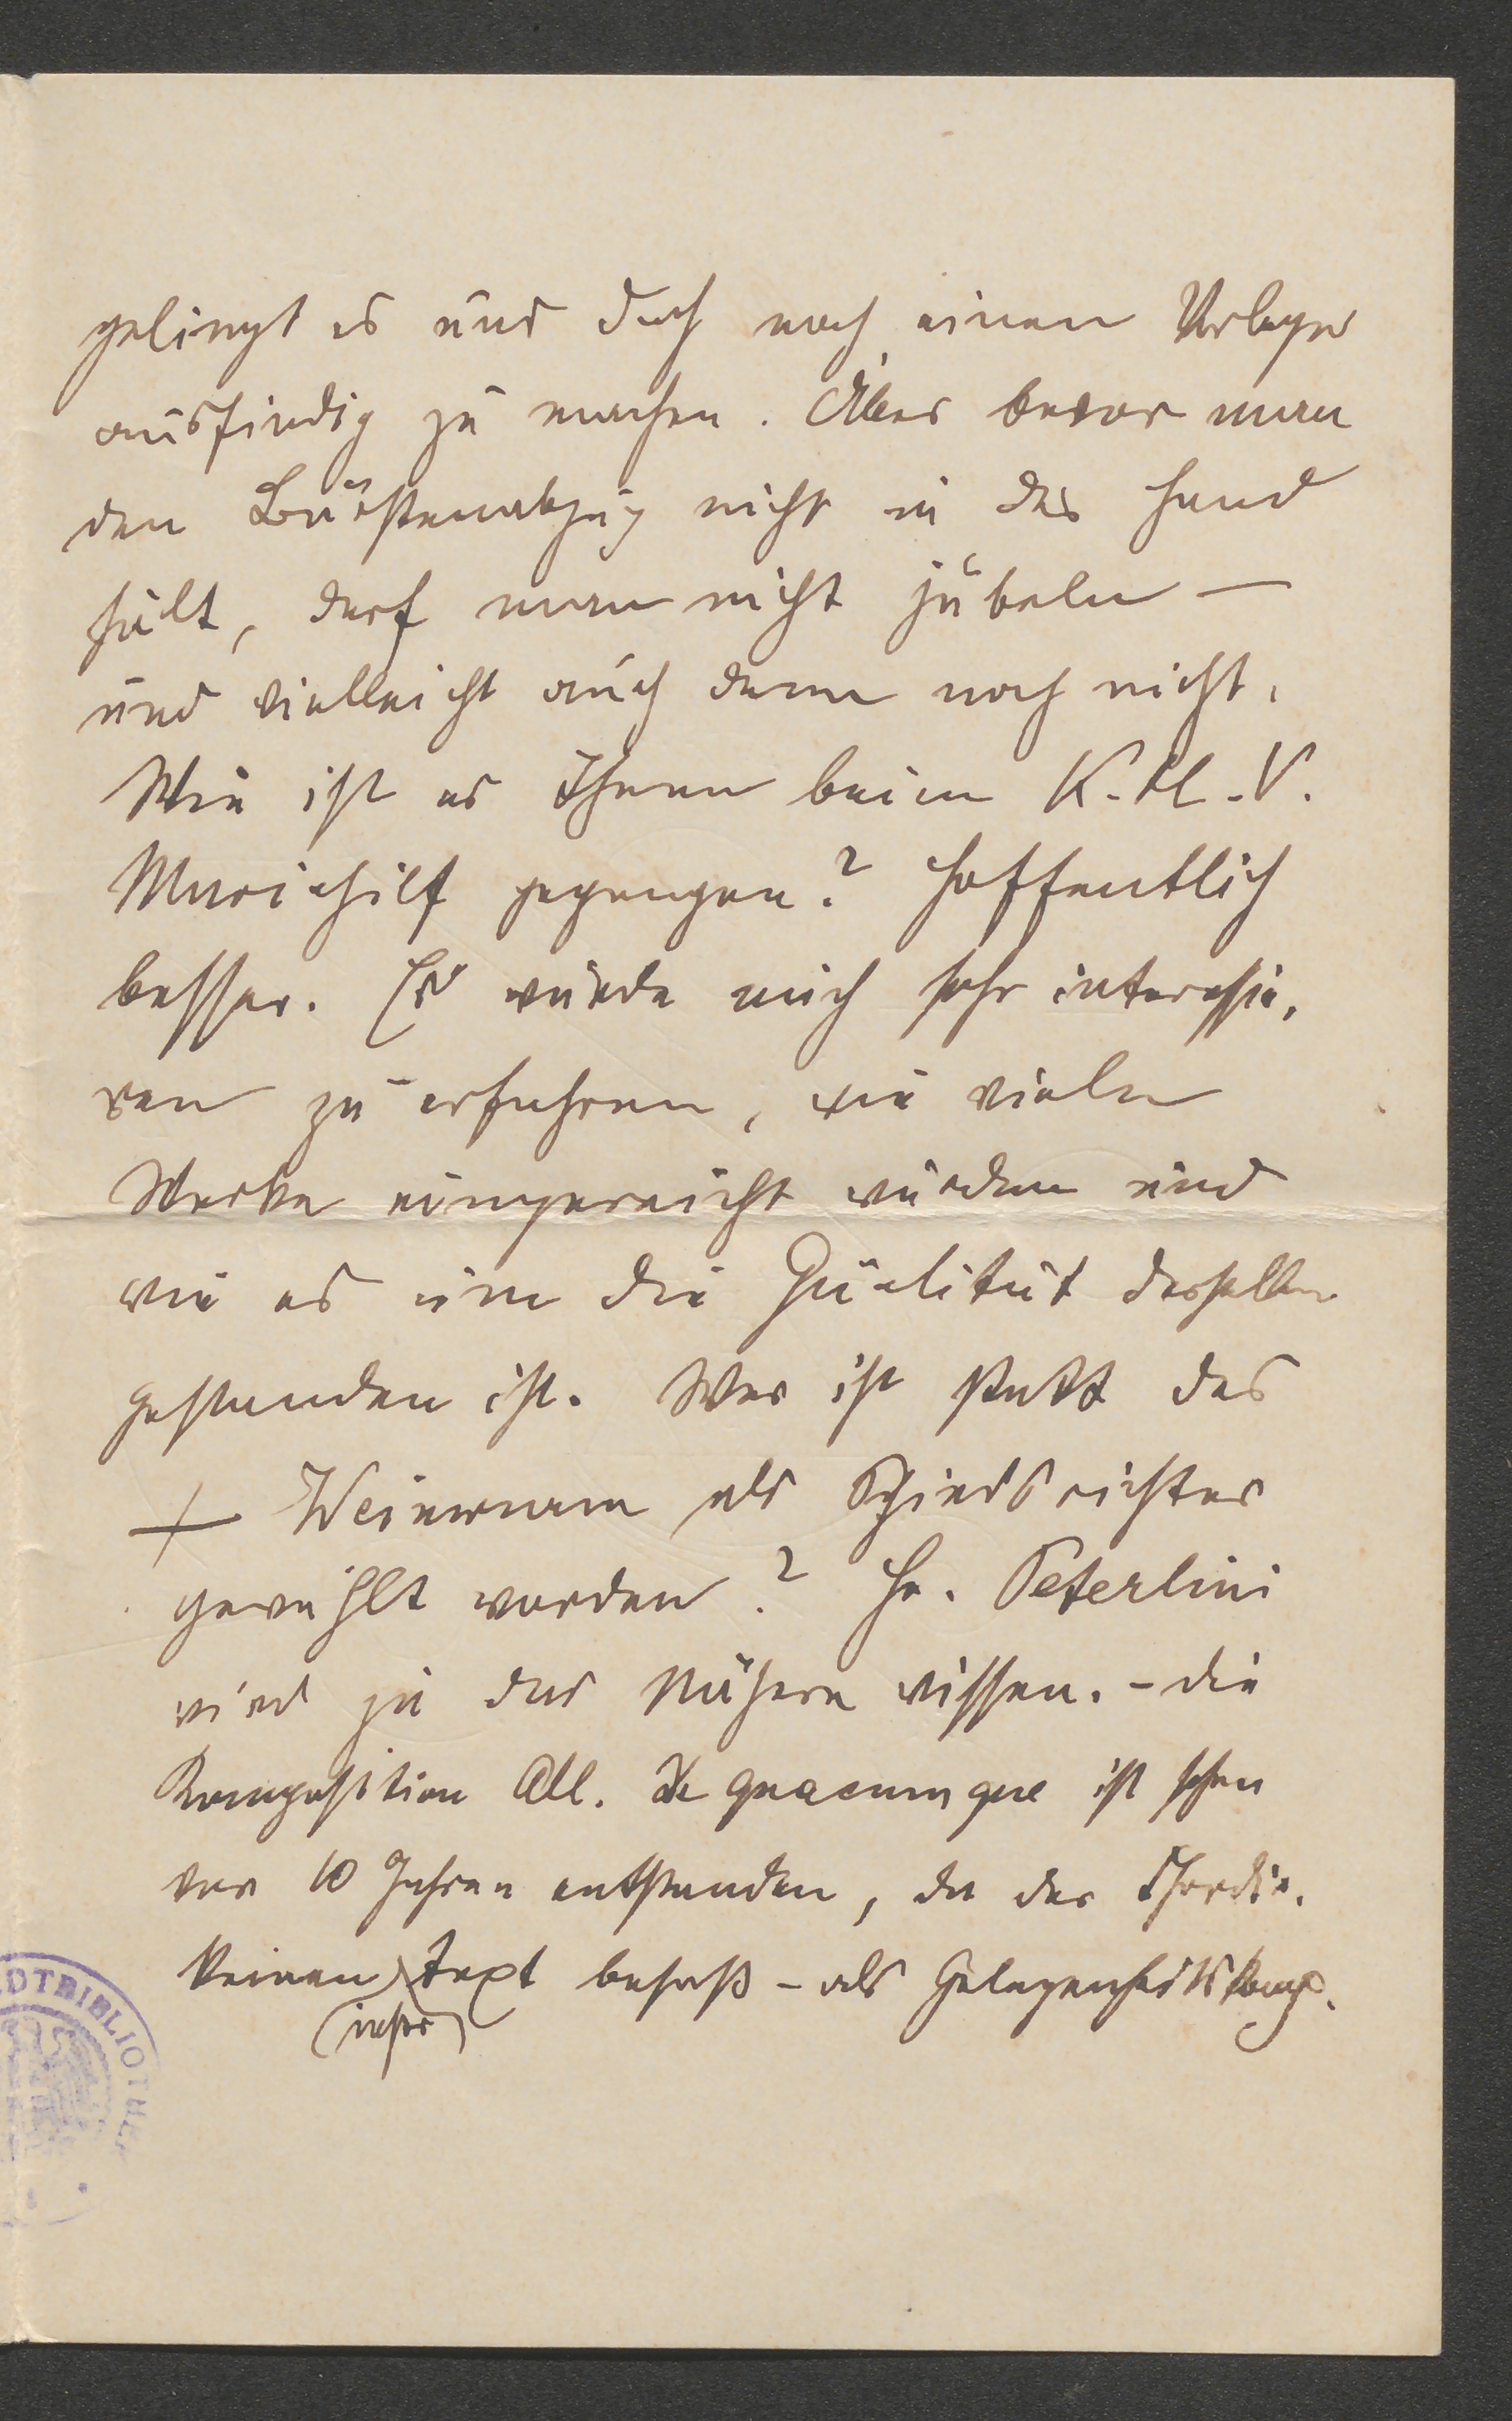 gelingt es uns doch noch einen Verleger
ausfindig zu machen. Aber bevor man
den Bürstenabzug nicht in der Hand
hält, darf man nicht jubeln —
und vielleicht auch dann noch nicht.
Wie ist es Ihnen beim K. M. V.
Mariahilf gegangen? Hoffentlich
besser. Es würde mich sehr interessie,
ren zu erfahren, wie viele
Werke eingereicht wurden und
wie es um die Qualität derselben
gestanden ist. Wer ist statt des
+ Weinwurm als Schiedsrichter
gewählt worden? Hr. Peterlini
wird ja das Nähere wissen. – Die
Komposition All. De quacumque ist schon
vor 10 Jahren entstanden, da der
keinen Text besaß – als Gelegenheitskomp.
STADTBIBLIOTHEK